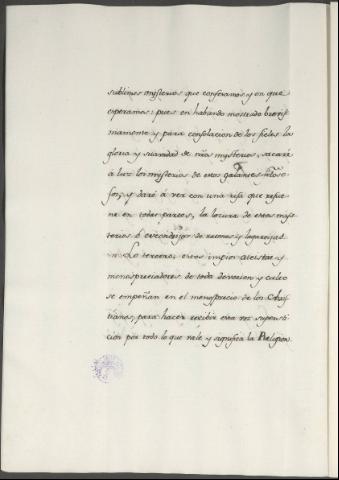 sublimes mysterios que confesamos y en que
esperamos: pues en habiendo mostrado brevisi
mamente y para consolacion de los fieles la
gloria y suavidad de ntros mysterios, sacaré
á luz los mysterios de estos galantes filoso
fos, y daré á ver con una risa que resue
ne en todas partes, la locura de estos myste
terios ó de
Lo tercero: estos impios ateistas y
menospreciadores de toda devocion y culto
se empeñan en el menosprecio de los Christ
tianos, para hacer recibir esta voz supersti
cion por todo lo que vale y significa la Religion